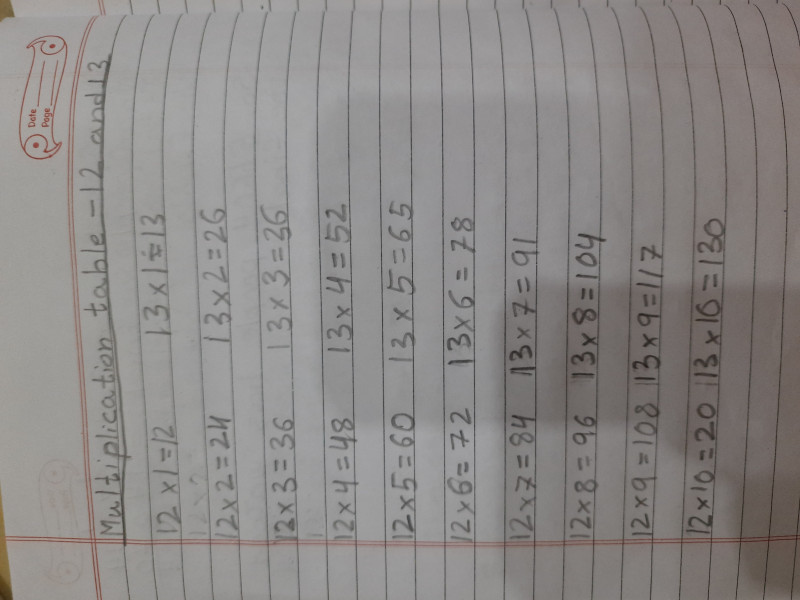 Date
Page
Multiplication table - 12 and 13
12 x 1 = 12 13 x 1 = 13
12 x 2 = 24 13 x 2 = 26
12 x 3 = 36 13 x 3 = 36
12 x 4 = 48 13 x 4 = 52
12 x 5 = 60 13 x 5 = 65
12 x 6 = 72 13 x 6 = 78
12 x 7 = 84 13 x 7 = 91
12 x 8 = 96 13 x 8 = 104
12 x 9 = 108 13 x 9 = 117
12 x 10 = 20 13 x 10 = 130